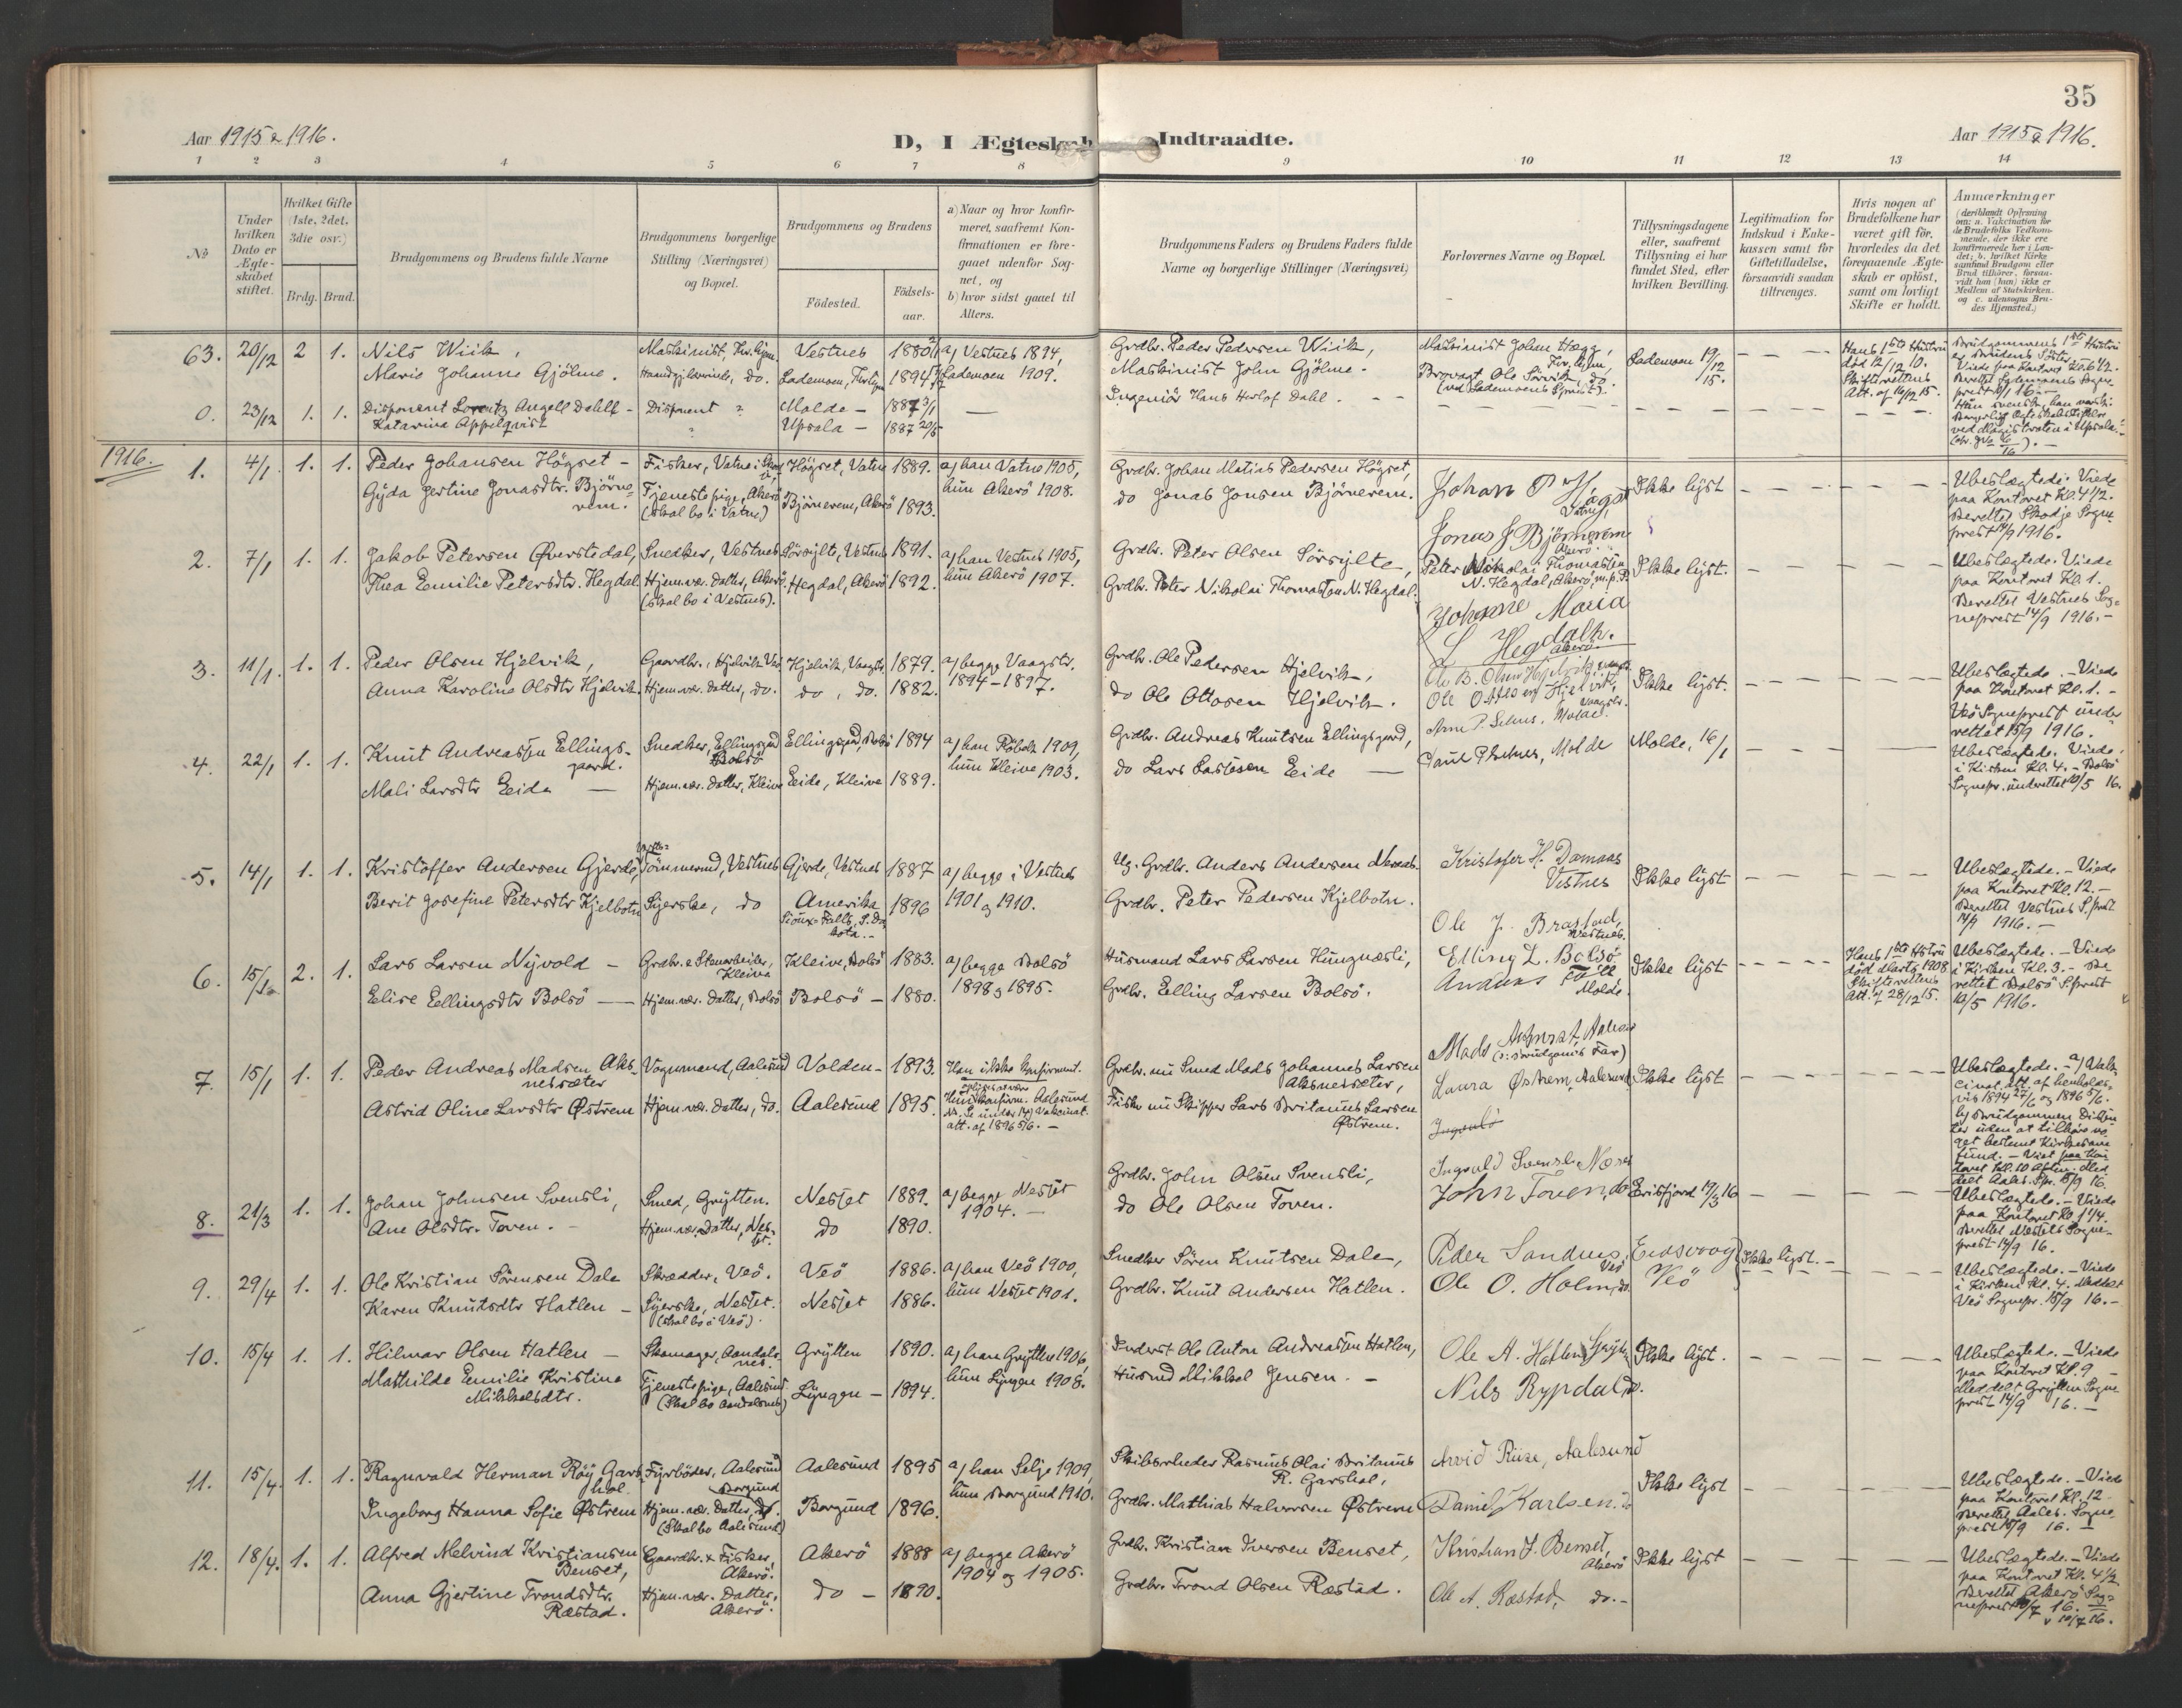 35
Aar 1915 & 1916.
D, I Ægteskab Indtraadte.
Aar 1915 & 1916.
1 2 3 4 5 6 7 8 9 10 11 12 13 14
No
Under hvilken Dato er Ægteskabet stiftet.
Hvilket Gifte (1ste, 2det, 3die osv.)
Brdg. Brud.
Brudgommens og Brudens fulde Navne
Brudgommens borgerlige Stilling (Næringsvei) og Bopæl.
Brudgommens og Brudens
Födested.
Födselsaar.
a) Naar og hvor konfirmeret, saafremt Konfirmationen er foregaaet udenfor Sognet, og
b) hvor sidst gaaet til Alters.
Brudgommens Faders og Brudens Faders fulde Navne og borgerlige Stillinger (Næringsvei)
Forlovernes Navne og Bopæl.
Tillysningsdagene eller, saafremt Tillysning ei har fundet Sted, efter hvilken Bevilling.
Legitimation for Indskud i Enkekassen samt for Giftetilladelse, forsaavidt saadan tiltrænges.
Hvis nogen af Brudefolkene har været gift för, hvorledes da det foregaaende Ægteskab er oplöst, samt om lovligt Skifte er holdt.
Anmærkninger
(deriblandt Oplysning om: a. Vakcination for de Brudefolks Vedkommende, der ikke ere konfirmerede her i Landet; b. hvilket Kirkesamfund Brudgom eller Brud tilhörer, forsaavidt han (hun) ikke er Medlem af Statskirken. og c. udensogns Brudes Hjemsted.)
63. 20/12 2 1. Nils Wiik, Maskinist, Vestnes 1880 a) Vestnes 1894, Grdbr. Peder Pedersen Wiik, Maskinist Johan Hægg, Lademoen 19/12 15. Hans 1ste Hustru död 12/12 10. Skifterettens Att. af 16/12 15.
Marie Johanne Gjölme. do. Lademoen, 1894 Lademoen 1909. Maskinist John Gjölme.
0. 23/12 1. 1. Disponent Lorentz Angell Dahll - Disponent ? Molde - 1887 3/1 — Ingeniör Hans Herlof Dahl.
Katarina Appelqvist Upsala - 1887 20/5
1916.
1. 4/1. 1. 1. Peder Johansen Högset - Fisker, Vatne i Högset, Vatne 1889. a) han Vatne 1905, Grdbr. Johan Matias Pedersen Högset, Johan P Ikke lyst Ubeslægtede. Viede paa Kontoret Kl. 4 1/2.
Gyda Gertine Jonasdtr. Björnerem. Tjenestepige, Akerö (skal bo i Vatne) Björnerem, Akerö 1893. hun Akerö 1908. do Jonas Jonsen Björnerem. Jonas J Björnerem Akerö Berettet Skodje Sogneprest 14/9 1916.
2. 7/1 1. 1. Jakob Petersen Øverstedal, Snedker, Vestnes Sörsylte, Vestnes 1891. a) han Vestnes 1905, Grdbr. Peter Olsen Sörsylte, Peter Nikolai Thomassen N. Hegdal, Akerö, m.p.P. Ikke lyst. Ubeslægtede. Viede paa Kontoret Kl. 1.
Thea Emilie Petersdtr. Hegdal Hjem.vær. Datter, Akerö. (skal bo i Vestnes). Hegdal, Akerö 1892. hun Akerö 1907. Grdbr. Peter Nikolai Thomassen N. Hegdal. Johanne Maria L Hegdalh. Akerö. Berettet Vestnes Sogneprest 14/9 1916. -
3. 11/1. 1. 1. Peder Olsen Hjelvik, Gaardbr., Hjelvik Hjelvik, Vaagstr. 1879. a) begge Vaagstr. Grdbr. Ole Pedersen Hjelvik, Ikke lyst. Ubeslægtede. - Viede paa Kontoret Kl. 1. -
Anna Karoline Olsdtr Hjelvik. Hjem.vær. Datter, do. do, do. 1882. 1894 - 1897. do Ole Ottosen Hjelvik. Ole Ottosen Hjelvik, Vaagstr. Veö Sogneprest underrettet 15/9 1916.
4. 22/1 1. 1. Knut Andreassen Ellingsgaard. Snedker, Ellingsgrd Bolsö Ellingsgrd, Bolsö 1894 a) han Röbek 1909, Grdbr. Andreas Knutsen Ellingsgaard, Molde. Molde, 16/1 Ubeslægtede. Viede i Kirken Kl. 4. - Bolsö
Mali Larsdtr Eide — Hjem.vær. Datter, Kleive Eide, Kleive 1889. hun Kleive 1903. do Lars Larsen Eide — Molde Sognepr. underrettet 10/5 16.
5. 14/1 1. 1. Kristoffer Andersen Gjerde, Tömmermd, Vestnes Gjerde, Vestnes 1887 a) begge i Vestnes Ug. Grdbr. Anders Andersen Kristofer H. Damaas Vestnes Ikke lyst Ubeslægtede. - Viede paa Kontoret Kl. 12. -
Berit Josefine Petersdtr Kjelbotn Syerske, do Amerika Sioux-Falls, S. Dakota. - 1896 1901 og 1910. Grdbr. Peter Pedersen Kjelbotn. Ole J. Brastad, Vestnes. Berettet Vestnes S.prest 14/9 1916. -
6. 15/1 2. 1. Lars Larsen Nyvold - Grdbr. & Stenarbeider, Kleive Kleive, Bolsö 1883. a) begge Bolsö Husmand Lars Larsen Hungnæsli, Elling L. Bolsö Ikke lyst Hans 1ste Hustru död Marts 1908 Skifterettens Att. af 28/12 15. Ubeslægtede. - Viede i Kirken Kl. 3. -
Elise Ellingsdtr Bolsö — Hjem.vær. Datter, Bolsö Bolsö - 1880. 1898 og 1895. Grdbr. Elling Larsen Bolsö. Andreas Molde. Berettet Bolsö S.prest 10/5 1916.
7. 15/1 1. 1. Peder Andreas Madsen Aksnessæter Vognmand, Aalesund Volden - 1893. Han ikke konfirmert. Grdbr. nu Smed Mads Johannes Larsen Aksnessæter, Mads Aksnes, Aalesund (o: Brudgoms Far) Ikke lyst Ubeslægtede. - a) Vakcinat. att. af henholdsvis 1894 27/6 og 1896 5/6.
Astrid Oline Larsdtr Østrem Hjem.vær. Datter, do. Aalesund 1895. Hun konfirm. Aalesund Vaksinat. att. af 1896 5/6. - Fisker nu Skipper Lars Britanus Larsen Østrem. Laura Østrem, Aalesund b) Brudgommen Dissenter uten at tilhøre noget bestemt Kirkesamfund. - Viet paa Kontoret Kl. 10 Aften.
8. 21/3 1. 1. Johan Johnsen Svensli, Smed, Grytten. Nesset 1889. a) begge Nesset Grdbr. John Olsen Svensli, Ingvald Svensli, Næsset Eresfjord 19/3 16 Ubeslægtede. - Viede paa Kontoret Kl. 1 1/4.
Ane Olsdtr. Toven. - Hjem.vær. Datter, Nesset. do 1890. 1904. - do Ole Olsen Toven. John Toven, do Berettet Næssets Sogneprest 14/9 16.
9. 29/4 1. 1. Ole Kristian Sörensen Dale Skrædder, Veö. Veö 1886. a) han Veö 1900, Snedker Sören Knutsen Dale, Peder Sandnes, Veö Eidsvaag Ikke lyst. - Ubeslægtede. - Viede i Kirken Kl. 4. Meddelt
Karen Knutsdtr Hatlen - Syerske, Nesset. (skal bo i Veö). Nesset 1886. hun Nesset 1901. Grdbr. Knut Andersen Hatlen. Ole O. Holm, do. Veö Veö Sognepr. 15/9 16. -
10. 15/4 1. 1. Hilmar Olsen Hatlen - Skomager, Aandalsnes. Grytten 1890. a) han Grytten 1906, Inderst Ole Anton Andreassen Hatlen, Ole A. Hatlen, Grytten Ikke lyst. Ubeslægtede. - Viede paa Kontoret Kl. 9 -
Mathilde Emilie Kristine Mikkelsdtr. Tjenestepige, Aalesund. (Skal bo Aandalsnes) Lyngen - 1894. hun Lyngen 1908. Husmd Mikkel Jensen. - Nils Rypdal, do. Meddelt Grytten Sogneprest 14/9 16. -
11. 15/4. 1. 1. Ragnvald Herman Röy Garshol. Fyrböder, Aalesund Aalesund 1895 a) han Selje 1909, Skibsreder Rasmus Olai Britanus R. Garshol, Arvid Riise, Aalesund Ikke lyst Ubeslægtede. - Viede paa Kontoret Kl. 12
Ingeborg Hanna Sofie Østrem Borgund Hjem.vær. Datter, do. (Skal bo Aalesund) Borgund 1896. hun Borgund 1910. Grdbr. Mathias Halvorsen Østrem Daniel Karlsen. do Berettet Aales. Sogneprest 15/9 16. -
12. 18/4. 1. 1. Alfred Melvind Kristiansen Benset, Gaardbr. & Fisker, Akerö. Akerö 1888 a) begge Akerö Grdbr. Kristian Iversen Benset, Kristian J. Benset, Akerö Ikke lyst Ubeslægtede. - Viede paa Kontoret Kl. 4 1/2
Anna Gjertine Trondsdtr. Ræstad. Hjem.vær. Datter, Akerö. do - 1890. 1904 og 1905. Grdbr. Trond Olsen Ræstad. Ole A. Ræstad, do. - Berettet Akerö Sogneprest 10/7 16.